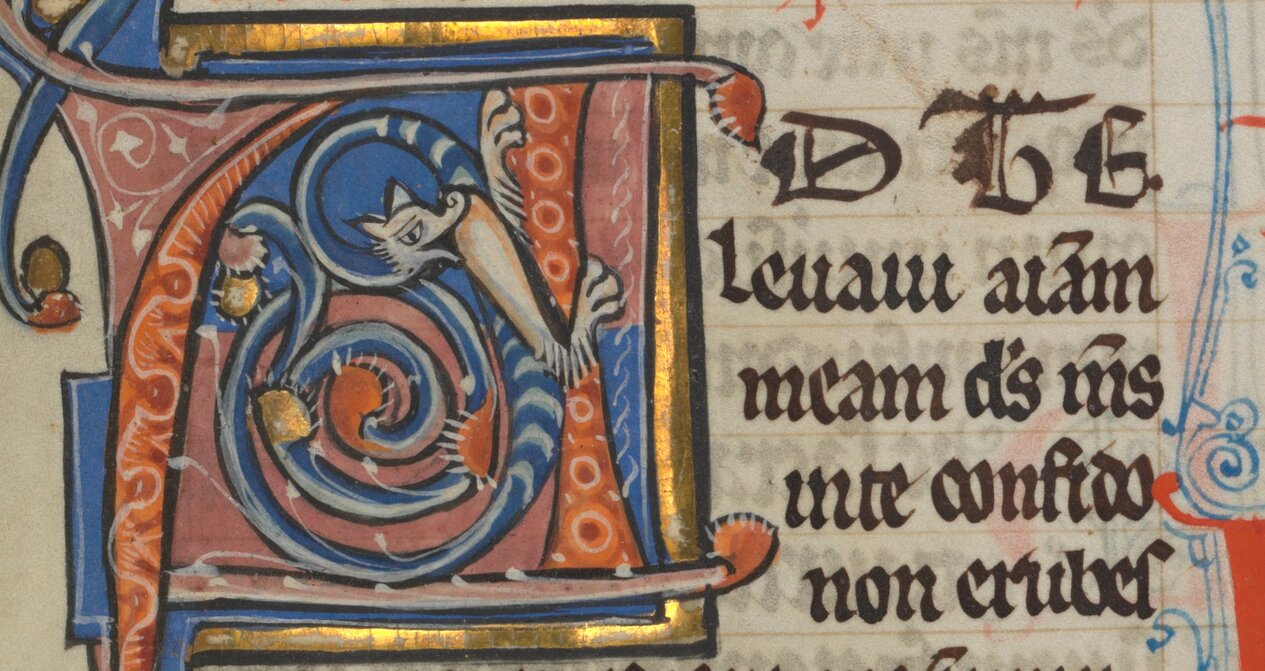 AD TE
leuaui aīam
meam d's m̄s
in te confido
non erubes